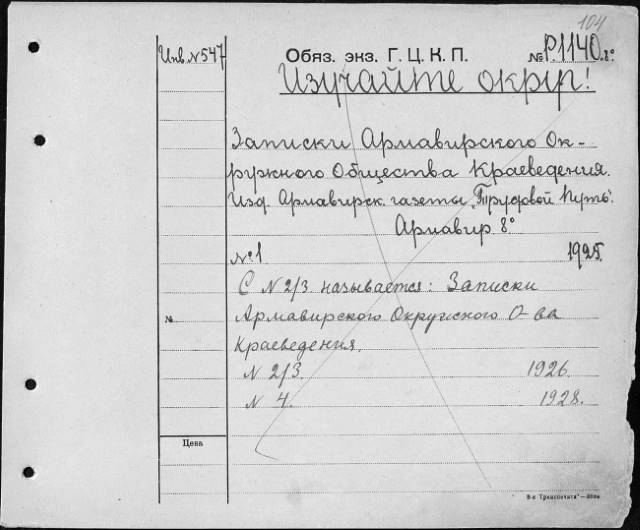 104
Инв. N 547
Обяз. экз. Г. Ц. К. П. № Р.1140. 8°
Изучайте округ!
Записки Армавирского Ок-
ружного Общества Краеведения.
Изд. Армавирск. газеты „Трудовой Путь".
Армавир. 8°
№1 1925.
С N 2/3 называется: Записки
№ Армавирского Окружского О-ва
Краеведения.
N 2/3. 1926.
N 4. 1928.
Цена